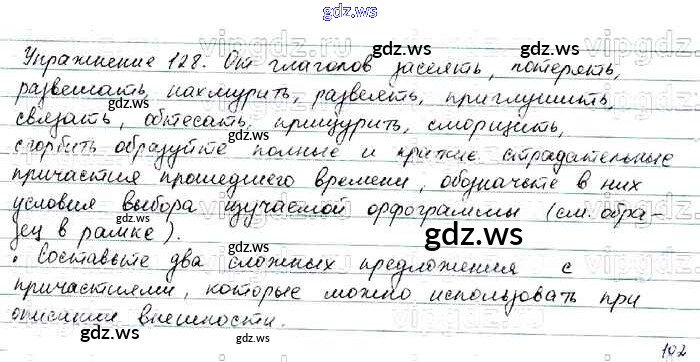 gdz.ws
Упражнение 128. От глаголов засеять, потерять,
развешать, нахмурить, развеять, приглушить,
связать, обтесать, прищурить, сморщить,
сгорбить образуйте полные и краткие страдательные
причастия прошедшего времени, обозначьте в них
условия выбора изучаемой орфограммы (см. обра-
зец в рамке).
• Составьте два сложных предложения с
причастиями, которые можно использовать при
описании внешности.
102